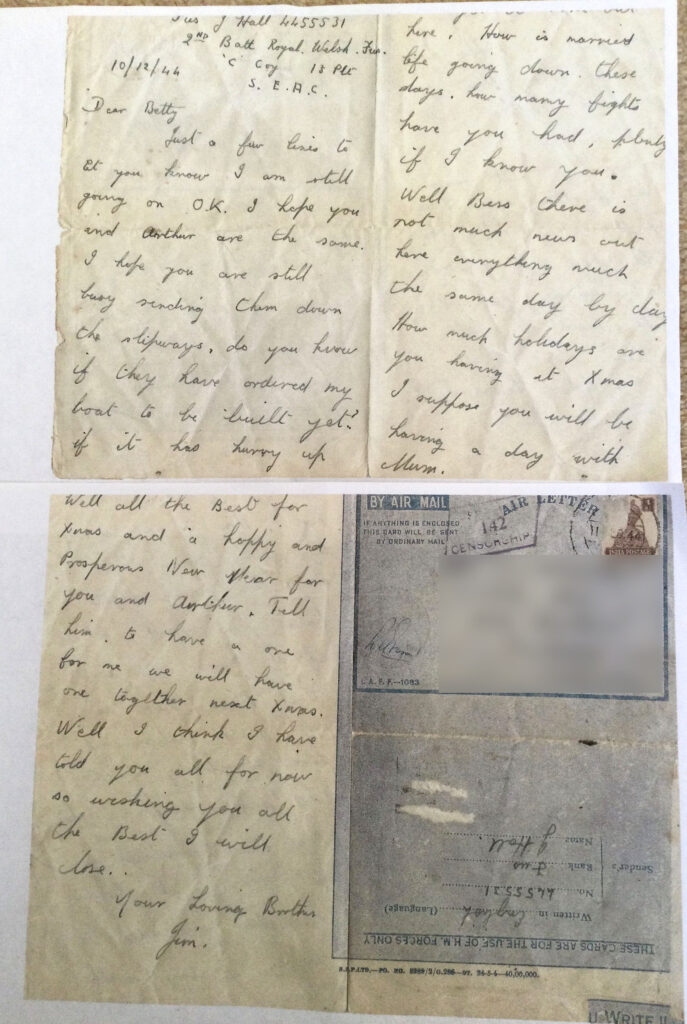 Fus J Hall 4455531
2ND Batt Royal. Welsh. Fus.
10/12/44 'C' Coy 13 Plt
S. E. A. C.
Dear Betty
Just a few lines to
let you know I am still
going on O.K. I hope you
and Arthur are the same.
I hope you are still
busy sending them down
the slipways, do you know
if they have ordered my
boat to be built yet?
if it has hurry up
here. How is married
life going down. these
days. how many fights
have you had, plenty
if I know you.
Well Bess there is
not much news out
here everything much
the same day by day
How much holidays are
you having at Xmas
I suppose you will be
having a day with
Mum.
Well all the Best for
Xmas and a happy and
Prosperous New Year for
you and Arthur. Tell
him to have a one
for me we will have
one together next Xmas.
Well I think I have
told you all for now
so wishing you all
the Best I will
close..
Your Loving Brother
Jim.
BY AIR MAIL
AIR LETTER
IF ANYTHING IS ENCLOSED
THIS CARD WILL BE SENT
BY ORDINARY MAIL
142
CENSORSHIP
INDIA POSTAGE
I. A. F. F.—1083
Sender's
Name J Hall.
Rank Fus
No. 4455531
Written in English (Language)
THESE CARDS ARE FOR THE USE OF H.M. FORCES ONLY